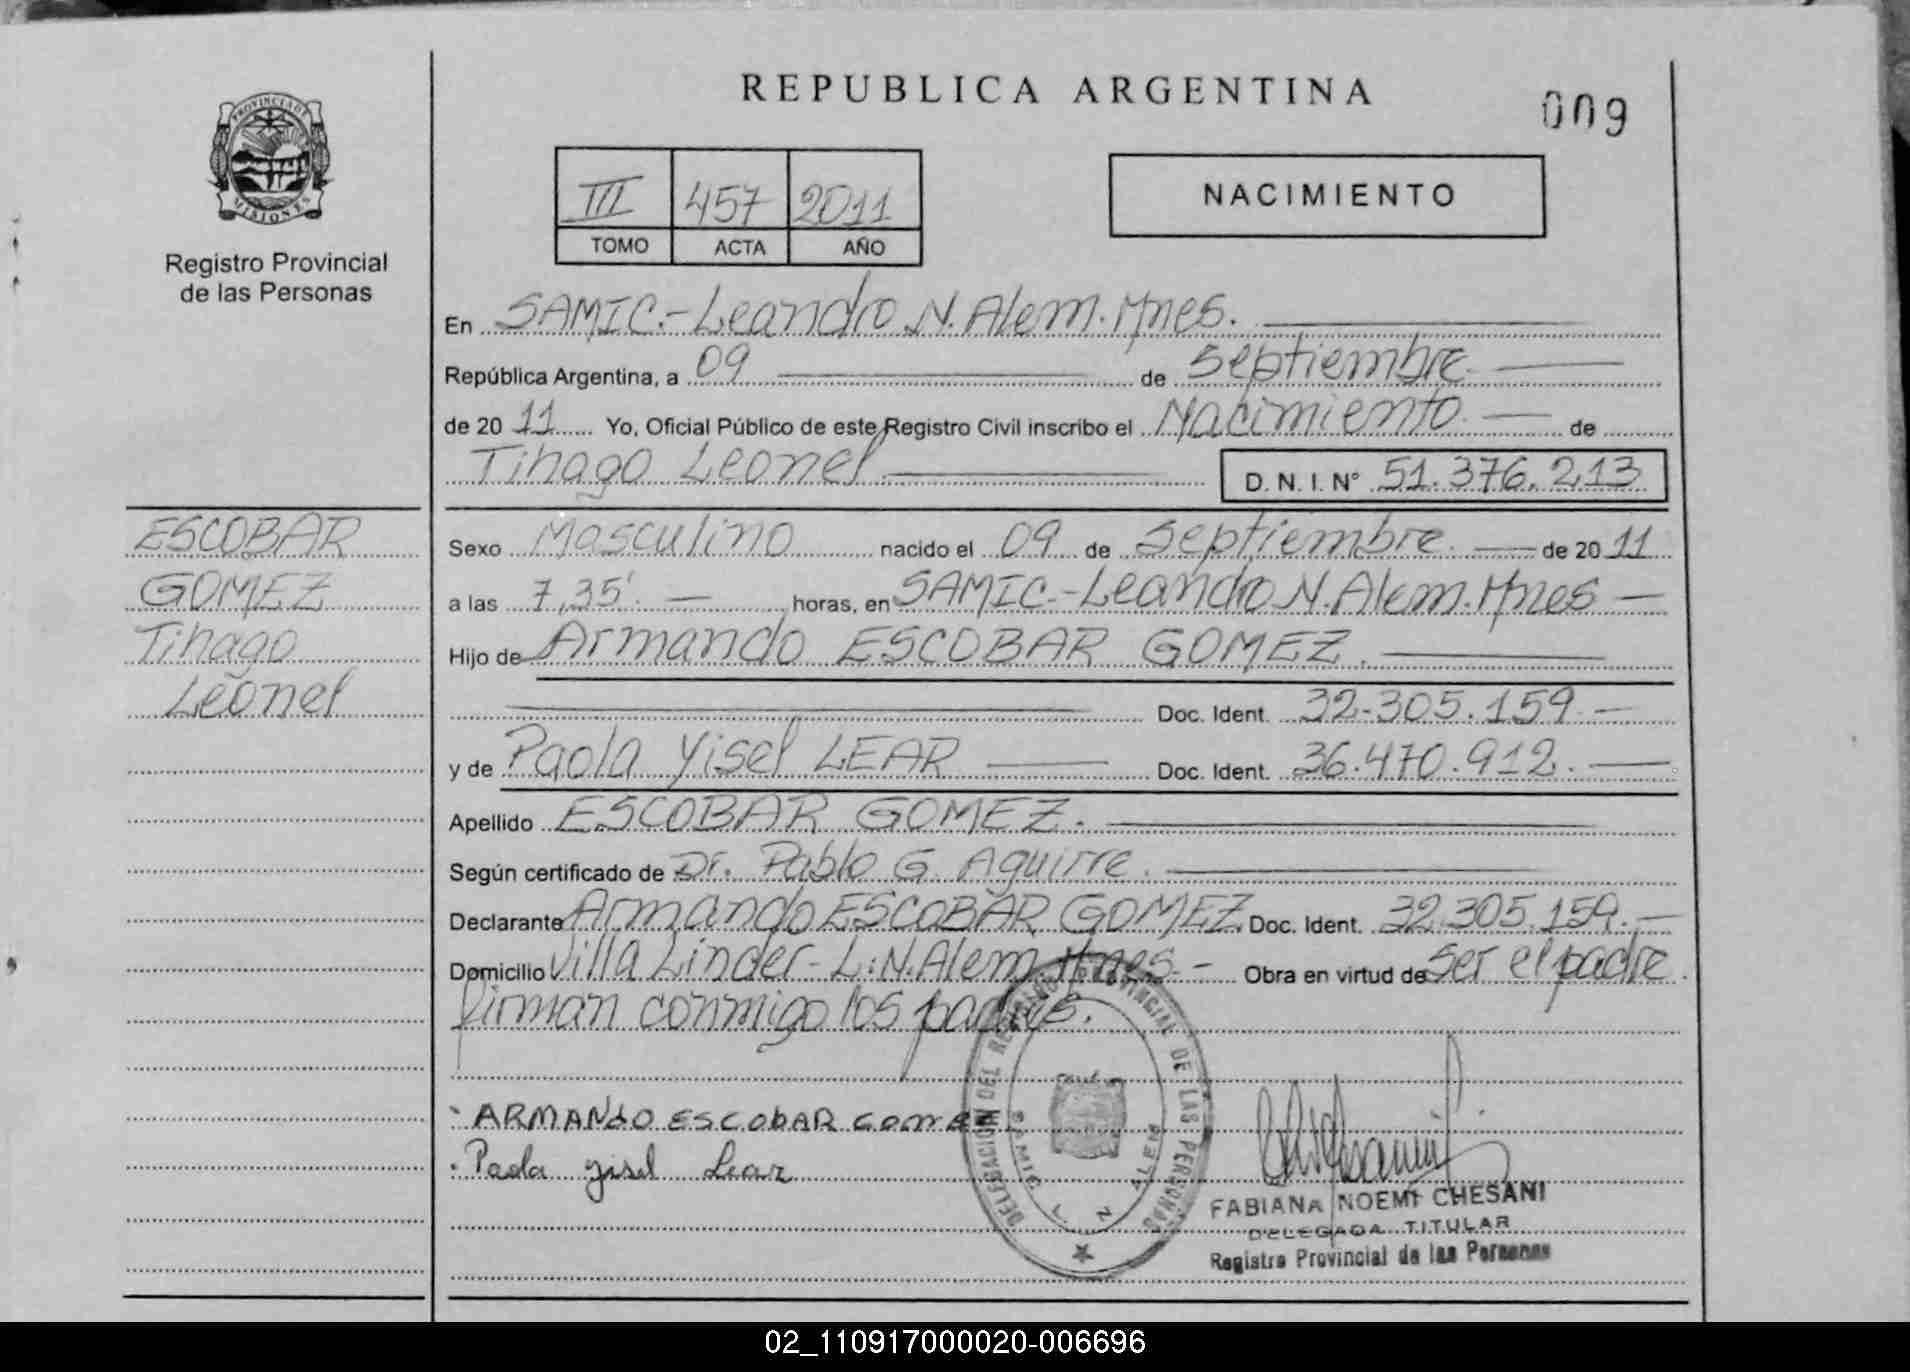 PROVINCIA DE
MISIONES
Registro Provincial
de las Personas
ESCOBAR
GOMEZ
Tihago
Leonel
REPUBLICA ARGENTINA
009
III 457 2011
TOMO ACTA AÑO
NACIMIENTO
En SAMIC.-Leandro N. Alem. Mnes.
República Argentina, a 09 de septiembre
de 20 11 Yo, Oficial Público de este Registro Civil inscribo el Nacimiento de
Tihago Leonel D. N. I. N° 51.376.213
Sexo Masculino nacido el 09 de septiembre de 20 11
a las 7,35' horas, en SAMIC.-Leandro N. Alem. Mnes
Hijo de Armando ESCOBAR GOMEZ.
Doc. Ident. 32.305.159.
y de Paola Yisel LEAR Doc. Ident. 36.470.912.
Apellido ESCOBAR GOMEZ.
Según certificado de Dr. Pablo G. Aguirre.
Declarante Armando ESCOBAR GOMEZ. Doc. Ident. 32.305.159.
Domicilio Villa Linder - L.N. Alem. Mnes. Obra en virtud de ser el padre.
firman conmigo los padres.
ARMANDO ESCOBAR GOMEZ
Paola yisel Lear
DELEGACION DEL REGISTRO PROVINCIAL DE LAS PERSONAS
SAMIC L. N. ALEM
FABIANA NOEMI CHESANI
DELEGADA TITULAR
Registro Provincial de las Personas
02_110917000020-006696